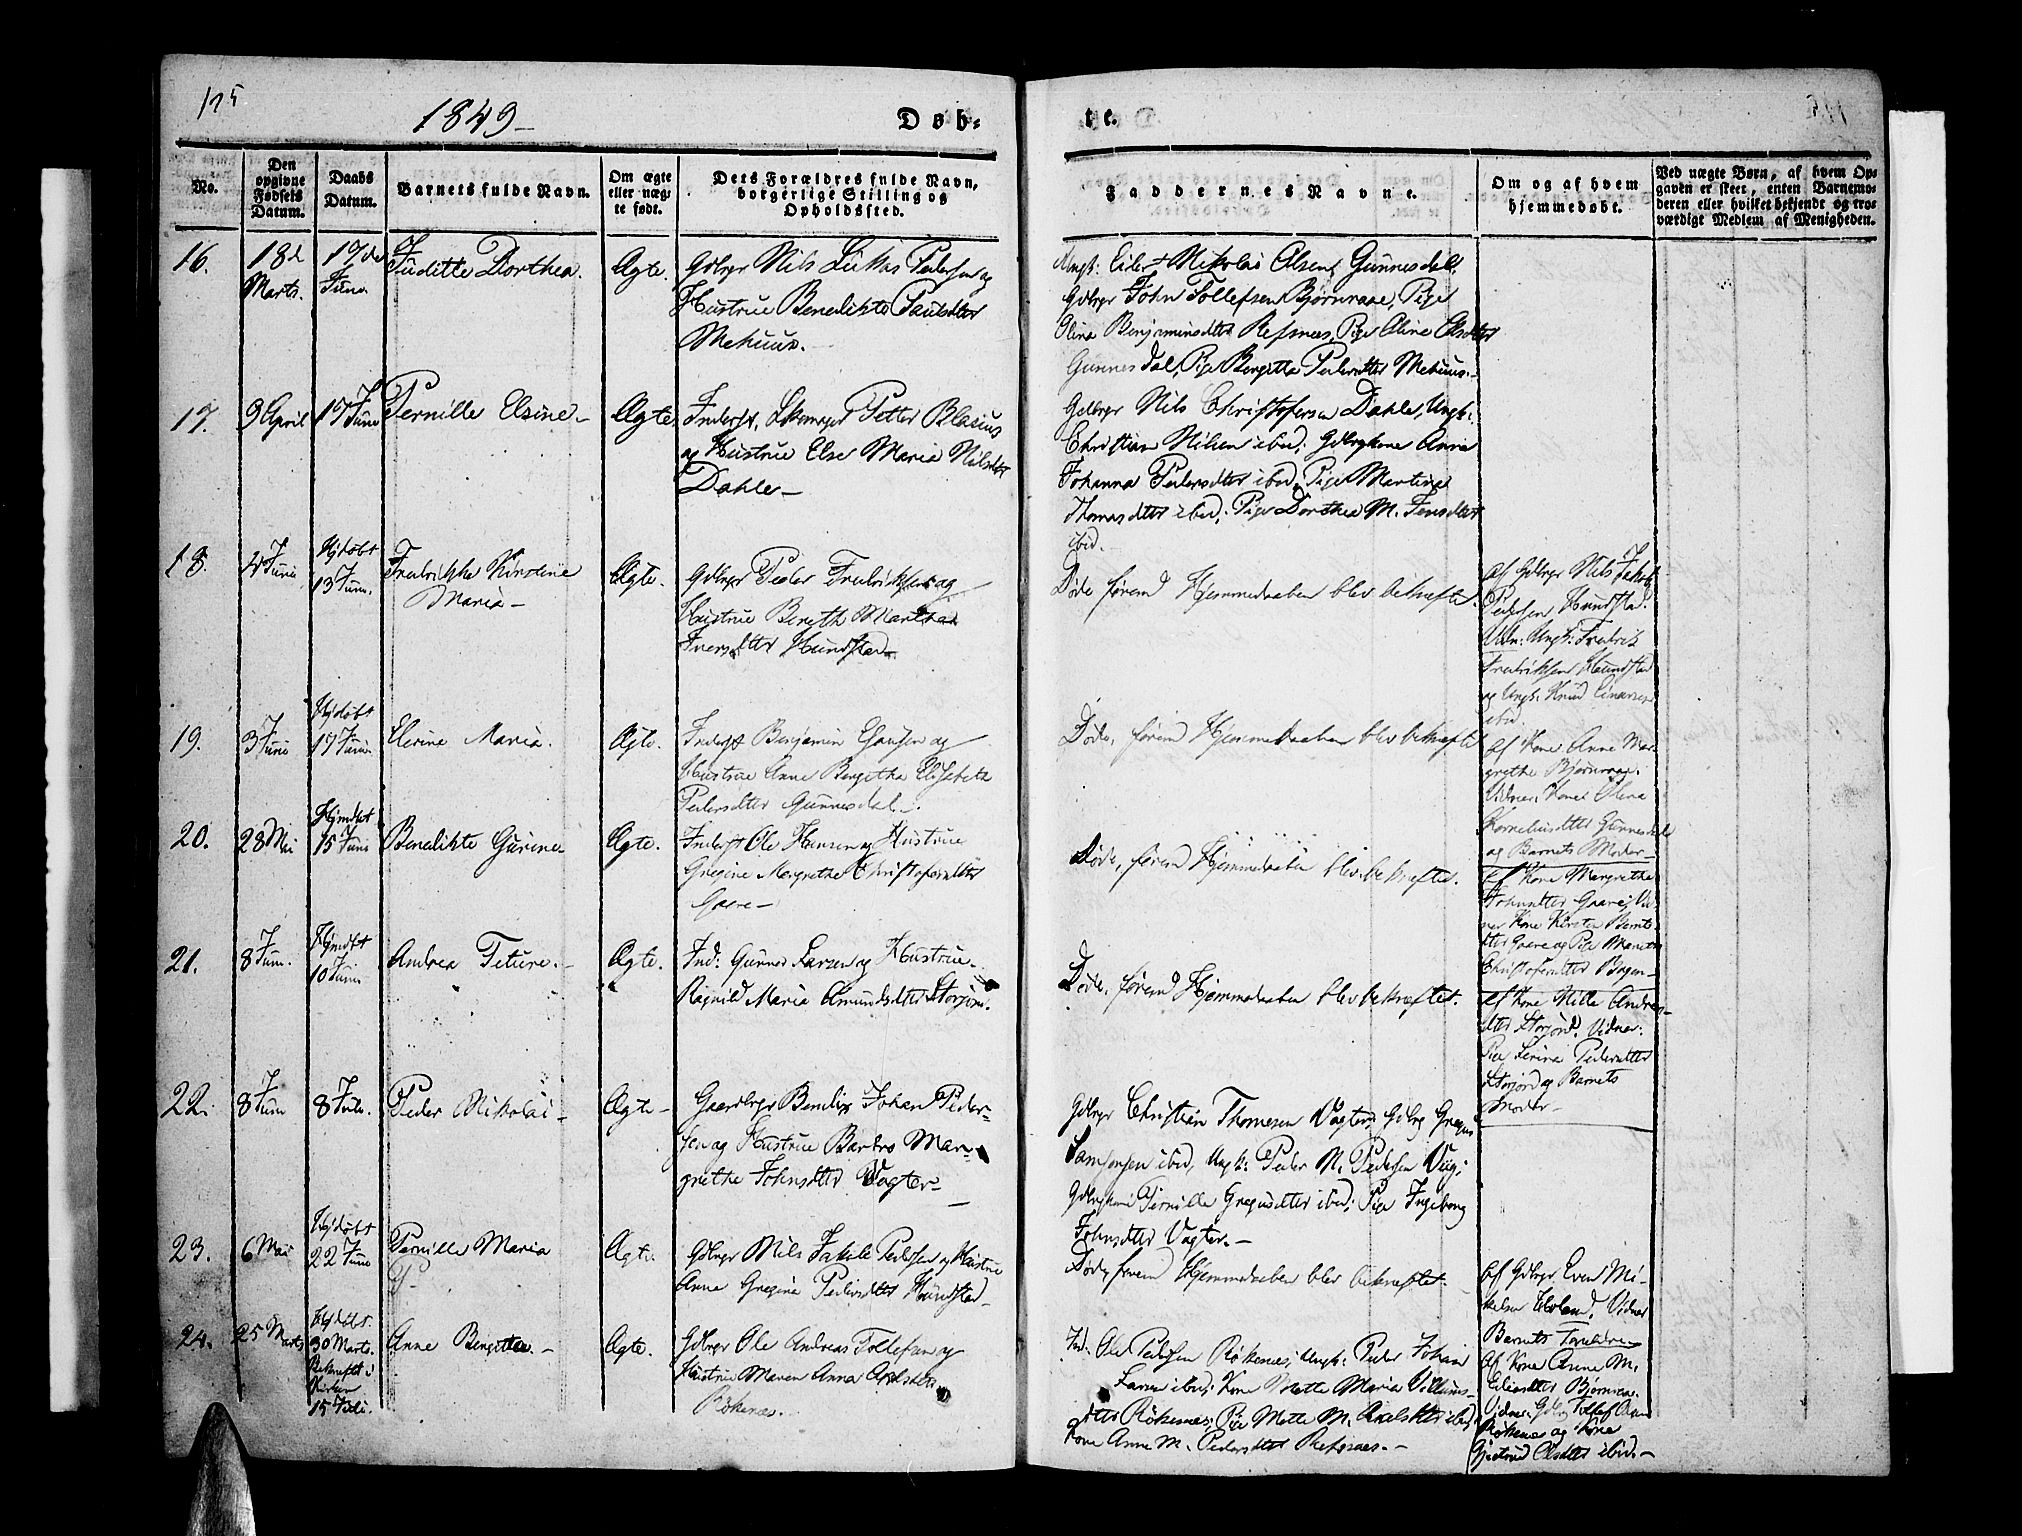 125
1849 –
Døb-
te.
No.
Den
opgivne
Fødsels
Datum.
Daabs
Datum.
Barnets fulde Navn.
Om ægte
eller næg-
te født.
Dets Forældres fulde Navn,
borgerlige Stilling og
Opholdssted.
Faddernes Navne.
Om og af hvem
hjemmedøbt.
Ved uægte Børn, af hvem Op-
gaven er skeet, enten Barnemo-
deren eller hvilket bekjendt og tro-
værdigt Medlem af Menigheden.
16.
18d
Marts.
17de
Juni
Juditte Dorthea.
Ægte.
Gdbrgr Nils Lukas Pedersen og
Hustrue Benedikte Paulsdtter
Mehuus.
Ungk: Eilert Nikolai Olsen Gunnesdall,
Gdbrgr John Tollefsen Bjørnraae, Pige
Olina Benjaminsdtter Refsnes, Pige Oline Olsdtter
Gunnesdal, Pige Bergitha Pedersdtter Mehuus.–
17.
9 April
17 Juni
Pernille Elsine –
Ægte
Inderst, Skomager Petter Blasius
og Hustrue Else Maria Nilsdtter
Dahle –
Gdbrgr Nils Christofersen Dahle, Ungk:
Christian Nilsen ibid; Gdbrgkone Anne
Johanna Pedersdtter ibid, Pige Martine
Thomasdtter ibid; Pige Dorthea M. Jensdtter
ibid.
18.
4 Juni
Hjdøbt
13 Juni.
Fredrikke Kirstine
Maria –
Ægte.
Gdbrgr Peder Fredriksen og
Hustrue Bereth Martha
Iversdtter Hundstad
Døde førend Hjemmedaaben blev bekræftet.
af Gdbrgr Nils Jakob
Pedersen Hundstad.
Vidn: Ungk: Fredrik
Fredriksen Hundstad
og Ungk: Knud Einarsen
ibid.
19.
3 Juni
Hjdøbt
17 Juni.
Elerine Maria.
Ægte.
Inderst Benjamin Hansen og
Hustrue Anne Bergitha Elisabeth
Pedersdtter Gunnesdal.
Døde, førend Hjemmedaaben blev bekræftet
af Kone Anne Mar-
grethe Bjørnraae.
Vidner: Kone Oline
Korneliusdtter Gunnesdal
og Barnets Moder –
20.
28 Mai
Hjmdbt
15 Juni
Benedikte Gurine
Ægte.
Inderst Ole Hansen og Hustrue
Gregine Margrethe Christofersdtter
Gaare –
Døde, førend Hjemmedaaben blev bekræftet.
af Kone Margrethe
Johnsdtter Gaare; Vid-
ner Kone Kirsten Bernts-
dtter Gaare og Pige Maria
Christofersdtter Bogen –
21.
8 Juni.
Hjmdbt
10 Juni
Andrea Teture. –
Ægte.
Ind: Gunner Larsen og Hustrue
Ragnild Maria Amundsdtter Storjord.
Døde, førend Hjemmedaaben blev bekræftet.
af Kone Nille Andreas-
dtter Storjord. Vidner:
Pige Serina Pedersdtter
Storjord og Barnets
Moder –
22.
8 Juni
8 Juli.
Peder Nikolai –
Ægte –
Gaardbrgr Bendix Johan Peder-
sen og Hustrue Barbro Mar-
grethe Johnsdtter Vagter –
Gdbrgr Christian Thomesen Vagter; Gdbrg Gregus
Samsonsen ibid, Ungk: Peder N. Pedersen Viig;
Gdbrgkone Pernille Gregusdtter ibid; Pige Ingeborg
Johnsdtter Vagter. –
23.
6 Mai
Hjdøbt
22 Juni
Pernille Maria
Ægte.
Gdbrgr Nils Jakob Pedersen og Hustrue
Anne Gregine Pedersdtter Hundstad –
Døde, førend Hjemmedaaben blev bekræftet.
af Gdbrgr Even Mi-
kelsen Eleland, Vidner
Barnets Forældre –
24.
25 Marts
Hjdøbt.
30 Marts.
Bekræftet i
Kirken
15 Juli.
Anne Bergitha. –
Ægte.
Gdbrgr Ole Andreas Tollefsen og
Hustrue Maren Anna Axelsdtter
Røkenes.
Ind. Ole Pedersen Røkenes; Ungk: Peder Johan
Larsen ibid; Kone Mette Maria Villums-
dtter Røkenes; Pige Mette M. Axelsdtter ibid,
Kone Anne M. Pedersdtter Refsnes. –
af Kone Anne M.
Eliasdtter Bjørnraa.
Vidner. Gdbrg Tollef
Røkenes og Kone
Gjertrud Olsdtter ibid. –